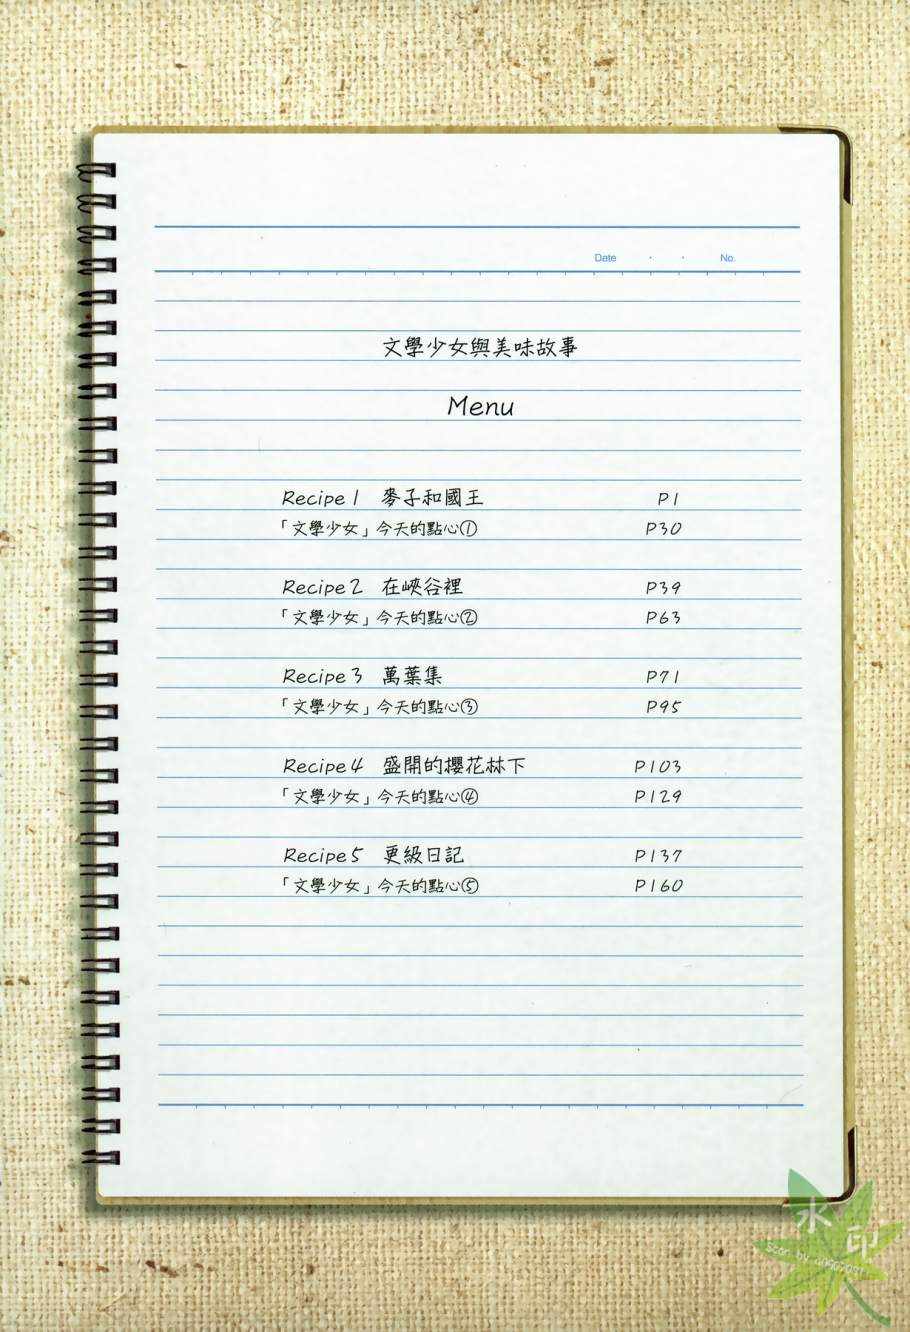 Date ・ ・ No.
文學少女與美味故事
Menu
Recipe 1 麥子和國王 P1
「文學少女」今天的點心① P30
Recipe 2 在峽谷裡 P39
「文學少女」今天的點心② P63
Recipe 3 萬葉集 P71
「文學少女」今天的點心③ P95
Recipe 4 盛開的櫻花林下 P103
「文學少女」今天的點心④ P129
Recipe 5 更級日記 P137
「文學少女」今天的點心⑤ P160
水印
scan by